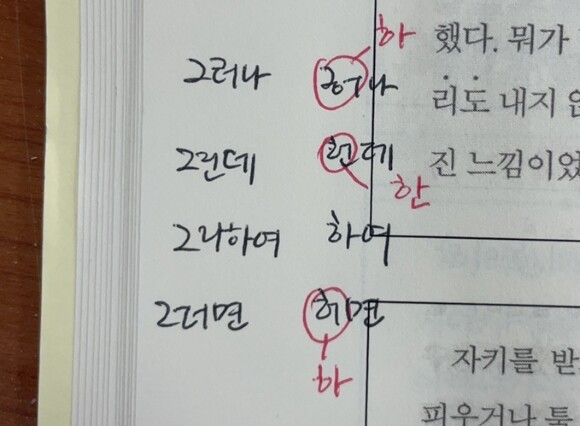 하
그러나 허나
했다. 뭐가
리도 내지
그런데 헌데
한
진 느낌이었
그리하여 하여
그러면 허면
하
자키를 받
피우거나 툭